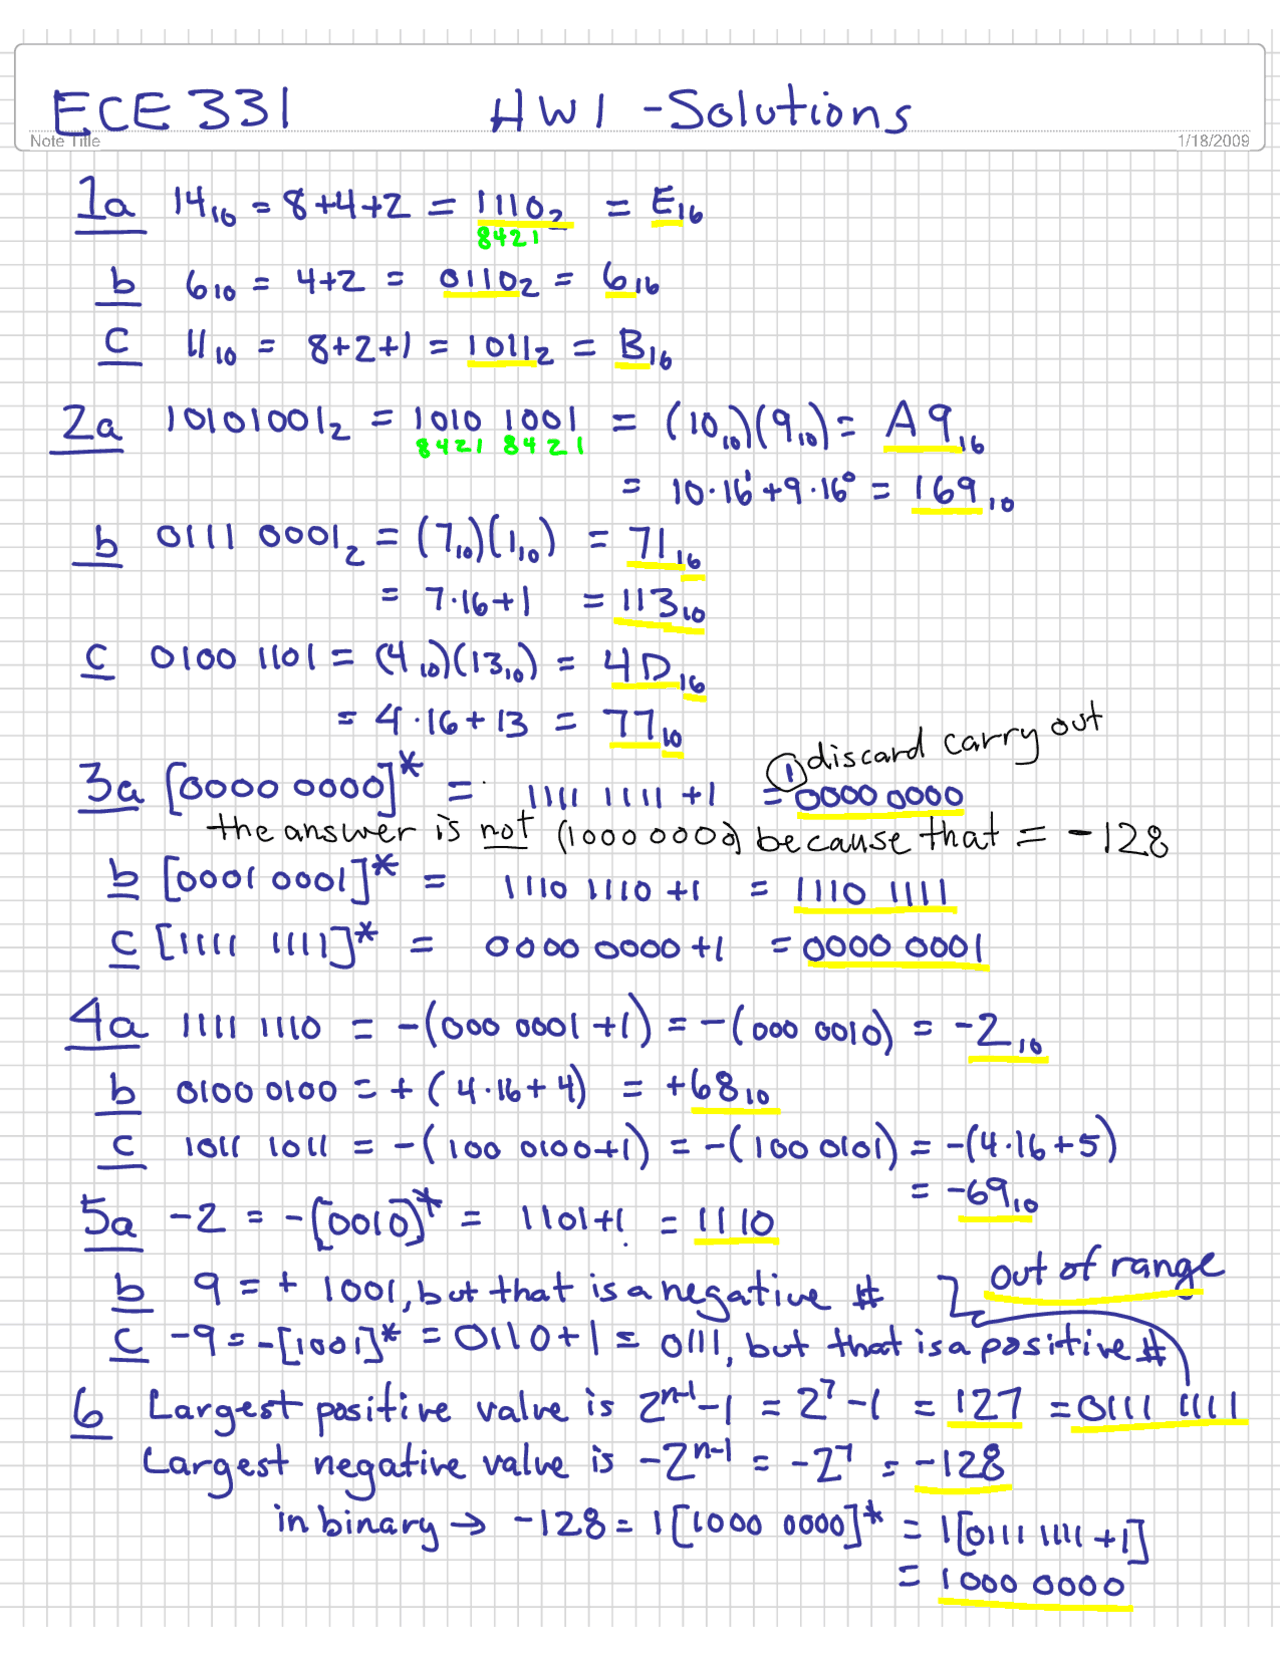 ECE 331 HW1 - Solutions
Note Title 1/18/2009
1a 14₁₀ = 8+4+2 = 1110₂ = E₁₆
8421
b 6₁₀ = 4+2 = 0110₂ = 6₁₆
c 11₁₀ = 8+2+1 = 1011₂ = B₁₆
2a 10101001₂ = 1010 1001 = (10₁₀)(9₁₀) = A9₁₆
8421 8421
= 10·16¹+9·16⁰ = 169₁₀
b 0111 0001₂ = (7₁₀)(1₁₀) = 71₁₆
= 7·16+1 = 113₁₀
c 0100 1101 = (4₁₀)(13₁₀) = 4D₁₆
= 4·16+13 = 77₁₀
1 discard carry out
3a [0000 0000]* = 1111 1111 +1 = 0000 0000
the answer is not (1000 0000) because that = -128
b [0001 0001]* = 1110 1110 +1 = 1110 1111
c [1111 1111]* = 0000 0000 +1 = 0000 0001
4a 1111 1110 = -(000 0001 +1) = -(000 0010) = -2₁₀
b 0100 0100 = + (4·16+4) = +68₁₀
c 1011 1011 = -(100 0100+1) = -(100 0101) = -(4·16+5)
= -69₁₀
5a -2 = -[0010]* = 1101+1 = 1110
out of range
b 9 = + 1001, but that is a negative #
c -9 = -[1001]* = 0110+1 = 0111, but that is a positive #
6 Largest positive value is 2ⁿ⁻¹-1 = 2⁷-1 = 127 = 0111 1111
Largest negative value is -2ⁿ⁻¹ = -2⁷ = -128
in binary → -128 = 1[1000 0000]* = 1[0111 1111 +1]
= 1000 0000